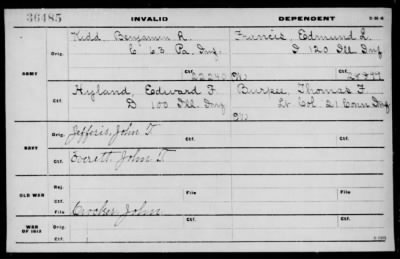 36485 INVALID DEPENDENT
Kidd Benjamin R. Francis, Edmund L.
Orig. C 63 Pa. Inf. Orig. D 120 Ill Inf
ARMY Ctf. 22240 Ctf.
Hyland, Edward F Burpee, Thomas F.
Ctf. D 100 Ill. Inf Ctf. Lt Col 21 Conn Inf
Orig. Jefferis, John T Ctf.
NAVY
Ctf. Everett, John
OLD WAR Rej. File File
Ctf.
WAR OF 1812 File Crocker, John Ctf.
Ctf.